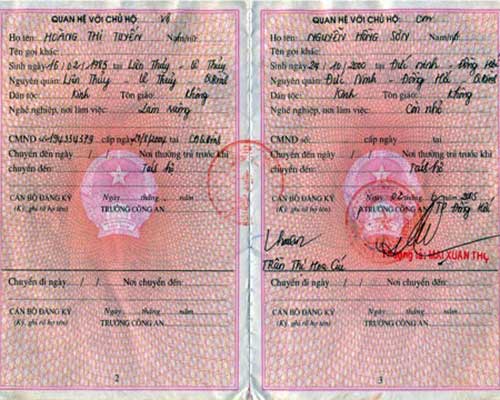 QUAN HỆ VỚI CHỦ HỘ: Vợ
Họ tên: HOÀNG THỊ TUYẾN Nam/nữ:
Tên gọi khác:
Sinh ngày 16/02/1985 tại Liên Thuỷ - Lệ Thuỷ
Nguyên quán: Liên Thuỷ - Lệ Thuỷ Q.Bình
Dân tộc: Kinh Tôn giáo: Không
Nghề nghiệp, nơi làm việc: Làm ruộng
CMND số: 194354579 cấp ngày tại CA Q.Bình
Chuyển đến ngày / / Nơi thường trú trước khi
chuyển đến:
Ngày tháng năm
CÁN BỘ ĐĂNG KÝ TRƯỞNG CÔNG AN
(Ký, ghi rõ họ tên)
Chuyển đi ngày / / Nơi chuyển đến:
Ngày tháng năm
CÁN BỘ ĐĂNG KÝ TRƯỞNG CÔNG AN
(Ký, ghi rõ họ tên)
2
QUAN HỆ VỚI CHỦ HỘ: Con
Họ tên: NGUYỄN HỒNG SƠN Nam/nữ:
Tên gọi khác:
Sinh ngày 24/10/2000 tại Đức Ninh - Đồng Hới
Nguyên quán: Đức Ninh - Đồng Hới Q.Bình
Dân tộc: Kinh Tôn giáo: Không
Nghề nghiệp, nơi làm việc: Còn nhỏ
CMND số: cấp ngày tại
Chuyển đến ngày / / Nơi thường trú trước khi
chuyển đến:
Ngày 02 tháng năm 2005
CÁN BỘ ĐĂNG KÝ TRƯỞNG CÔNG AN TP Đồng Hới
(Ký, ghi rõ họ tên)
Trần Thị Hoa
MAI XUÂN THU
Chuyển đi ngày / / Nơi chuyển đến:
Ngày tháng năm
CÁN BỘ ĐĂNG KÝ TRƯỞNG CÔNG AN
(Ký, ghi rõ họ tên)
3